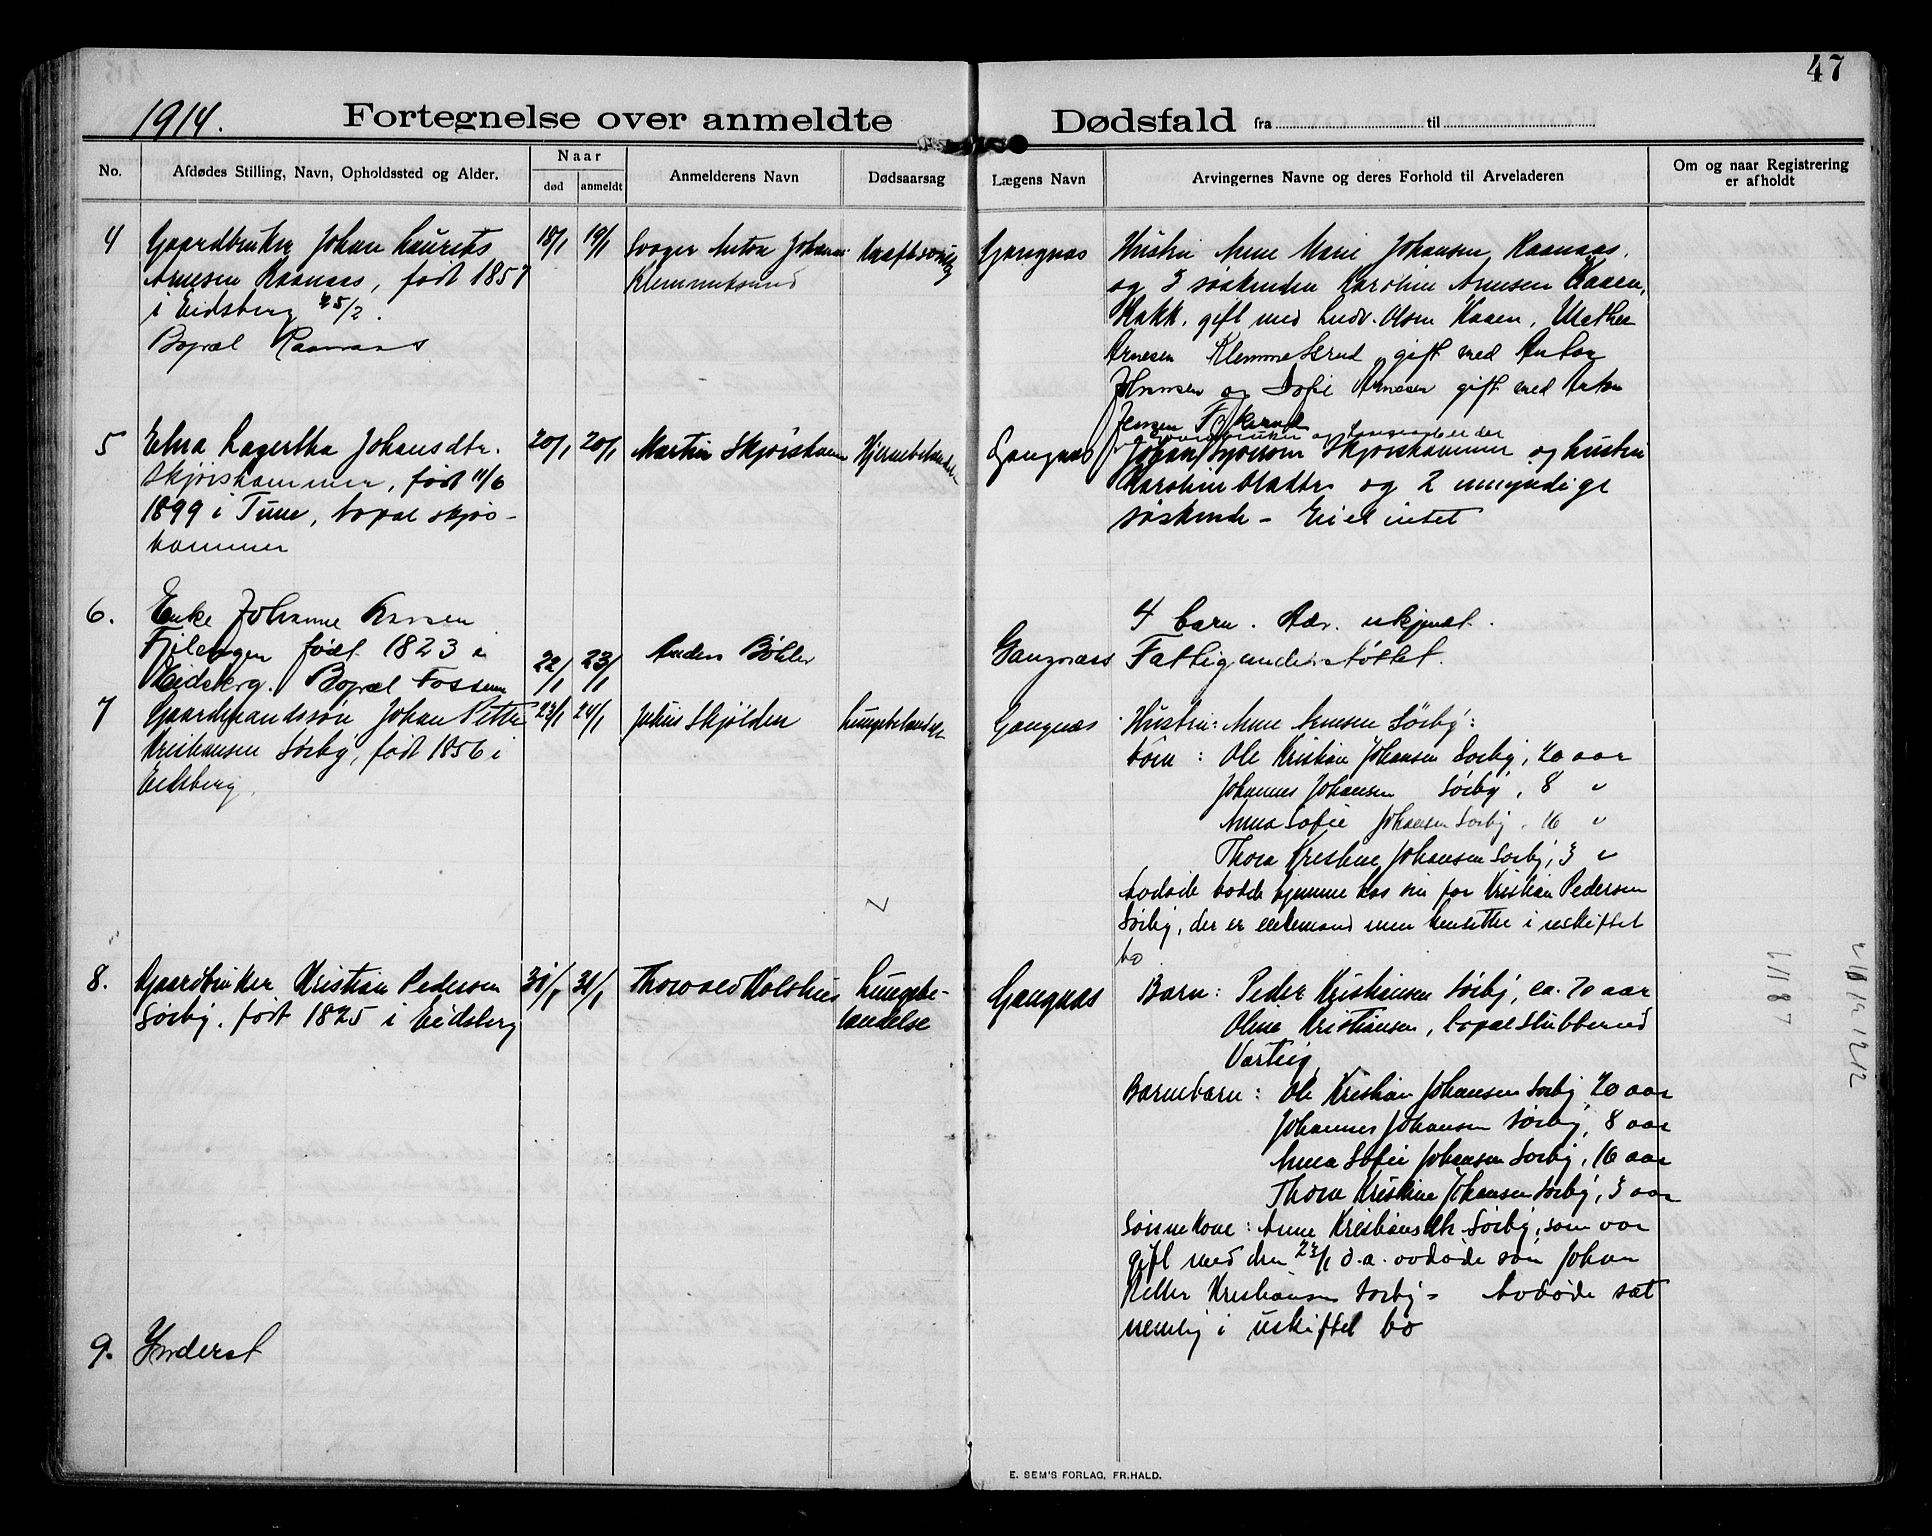 47
1914. Fortegnelse over anmeldte Dødsfald fra til
No.
Afdødes Stilling, Navn, Opholdssted og Alder.
Naar
død
anmeldt
Anmelderens Navn
Dødsaarsag
Lægens Navn
Arvingernes Navne og deres Forhold til Arveladeren
Om og naar Registrering
er afholdt
4
Gaardbruker Johan Laurits
Arnesen Raanaas, født 1857
i Eidsberg 25/2.
Bopæl Raanaas
18/1
19/1
Svoger Anton Johansen
Klemmetsrud
Kræftsvulst
Gangnæs
Hustru Anne Marie Johansen Raanaas.
og 3 søskende Karoline Arnesen Kaaen,
Rakk. gift med Ludv. Olsen Kaaen, Mathea
Arnesen Klemmetsrud gift med Anton
Johansen og Sofie Arnesen gift med Anton
Jensen
5
Elna Lagertha Johansdtr.
Skjørshammer, født 11/6
1899 i Tune, bopæl Skjørs-
hammer
20/1
20/1
Martin Skjørshammer
Hjernebetændelse
Gangnæs
gaardbruker og
Johan Syversen Skjørshammer og hustru
Karoline og 2 umyndige
søskende - Eiet intet
6.
Enke Johanne Hansen
født 1823 i
Eidsberg. Bopæl Fossum
22/1
23/1
Anders Böhler
Gangnæss
4 barn. Adr. ukjendt.
Fattigunderstøttet.
7
Gaardmandssøn Johan Petter
Kristiansen Sörby, født 1856 i
Eidsberg.
23/1
24/1
Julius Skjölden
Lungebetændelse
Gangnæs
Hustru: Anne Arnesen Sörby:
börn: Ole Kristian Johansen Sörby, 20 aar
Johannes Johansen Sörby, 8 "
Anna Sofie Johansen Sörby, 16 "
Thora Kristine Johansen Sörby, 3 "
Avdöde bodde hjemme hos sin far Kristian Pedersen
Sörby, der er enkemand men hensitter i uskiftet
bo
8.
Gaardbruker Kristian Pedersen
Sörby. født 1825 i Eidsberg
31/1
31/1
Thorvald Holshus
Lungebe-
tændelse
Gangnæs
Barn: Peder Kristiansen Sörby, ca. 70 aar
Oline Kristiansen, bopæl Stubberud
Varteig
Barnebarn: Ole Kristian Johansen Sörby 20 aar
Johannes Johansen Sörby, 8 aar
Anna Sofie Johansen Sörby, 16 aar
Thora Kristine Johansen Sörby, 3 aar
Sönnekone: Anne Kristiansdtr. Sörby, som var
gift med den 23/1 d.a. avdöde sön Johan
Petter Kristiansen Sörby - Avdöde sat
nemlig i uskiftet bo
9.
Inderst
E. SEM'S FORLAG, FR.HALD.